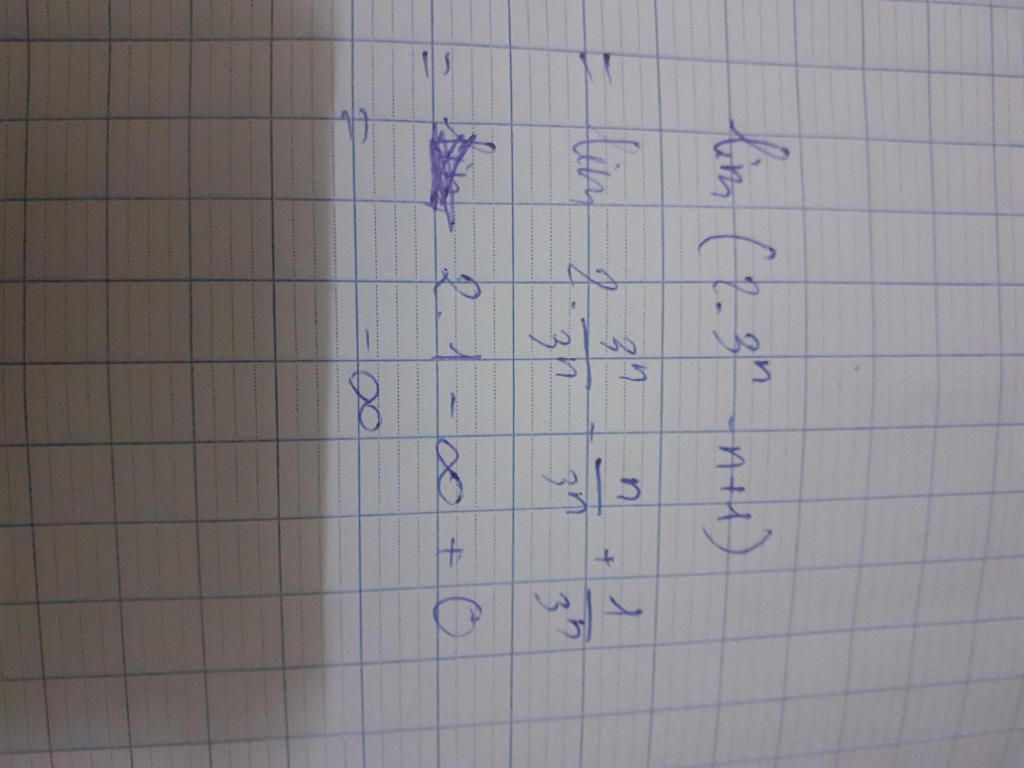 lim (2.3ⁿ - n + 1)
= lim 2. 3ⁿ/3ⁿ - n/3ⁿ + 1/3ⁿ
= 2. 1 - ∞ + 0
= - ∞